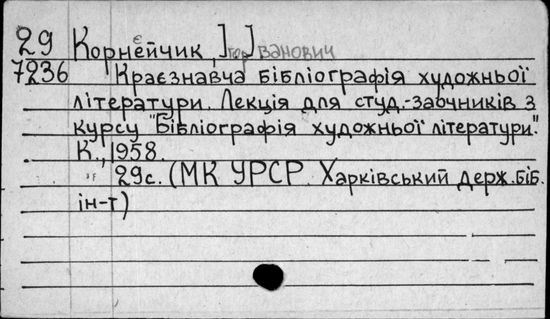 29 Корнейчик, І[гор] Іванович
7236 Краєзнавча бібліографія художньої
літератури. Лекція для студ.-заочників з
курсу "Бібліографія художньої літератури".
К., 1958.
29с. (МК УРСР. Харківський держ. біб.
ін-т)